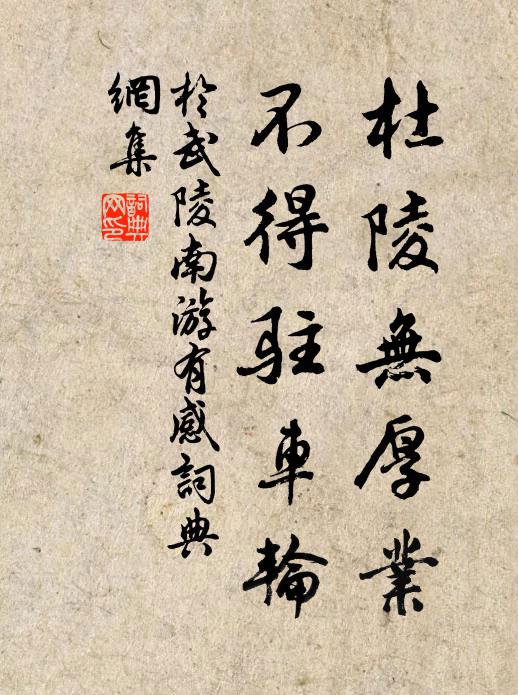 杜陵無厚業
不得駐車輪
於武陵南游有感詞典
網集
詞典
网印